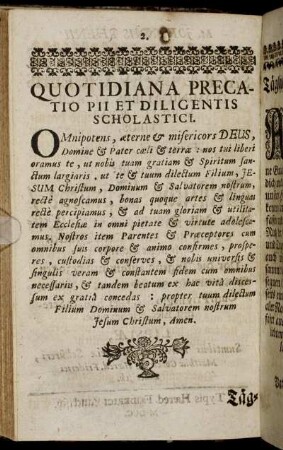 2.
QUOTIDIANA PRECA-
TIO PII ET DILIGENTIS
SCHOLASTICI.
OMnipotens, æterne & misericors DEUS,
Domine & Pater cœli & terræ: nos tui liberi
oramus te, ut nobis tuam gratiam & Spiritum san-
ctum largiaris, ut te & tuum dilectum Filium, JE-
SUM Christum, Dominum & Salvatorem nostrum,
rectè agnoscamus, bonas quoque artes & linguas
rectè percipiamus, & ad tuam gloriam & utilita-
tem Ecclesiæ in omni pietate & virtute adolesca-
mus. Nostros item Parentes & Præceptores cum
omnibus suis corpore & animo confirmes, prospe-
res, custodias & conserves, & nobis universis &
singulis veram & constantem fidem cum omnibus
necessariis, & tandem beatum ex hac vitâ disces-
sum ex gratiâ concedas: propter tuum dilectum
Filium Dominum & Salvatorem nostrum
Jesum Christum, Amen.
Täg-